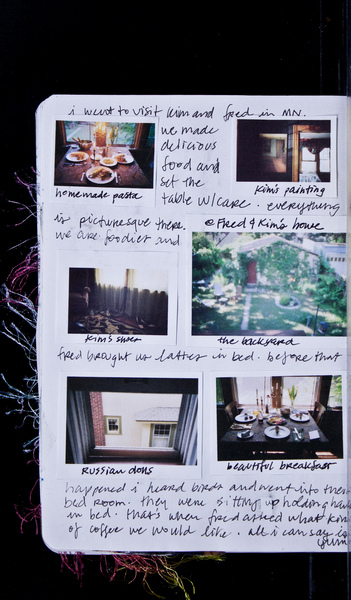 i went to visit Kim and fred in MN.
we made
delicious
food and
set the
table w/care. everything
homemade pasta
Kim's painting
is picturesque there.
we are foodies and
@ Fred & Kim's home
Kim's shoes
the backyard
fred brought us lattes in bed. before that
Russian dolls
beautiful breakfast
happened i heard birds and went into their
bed room. they were sitting up holding
in bed. that's when fred asked what kind
of coffee we would like. all i can say is
yum